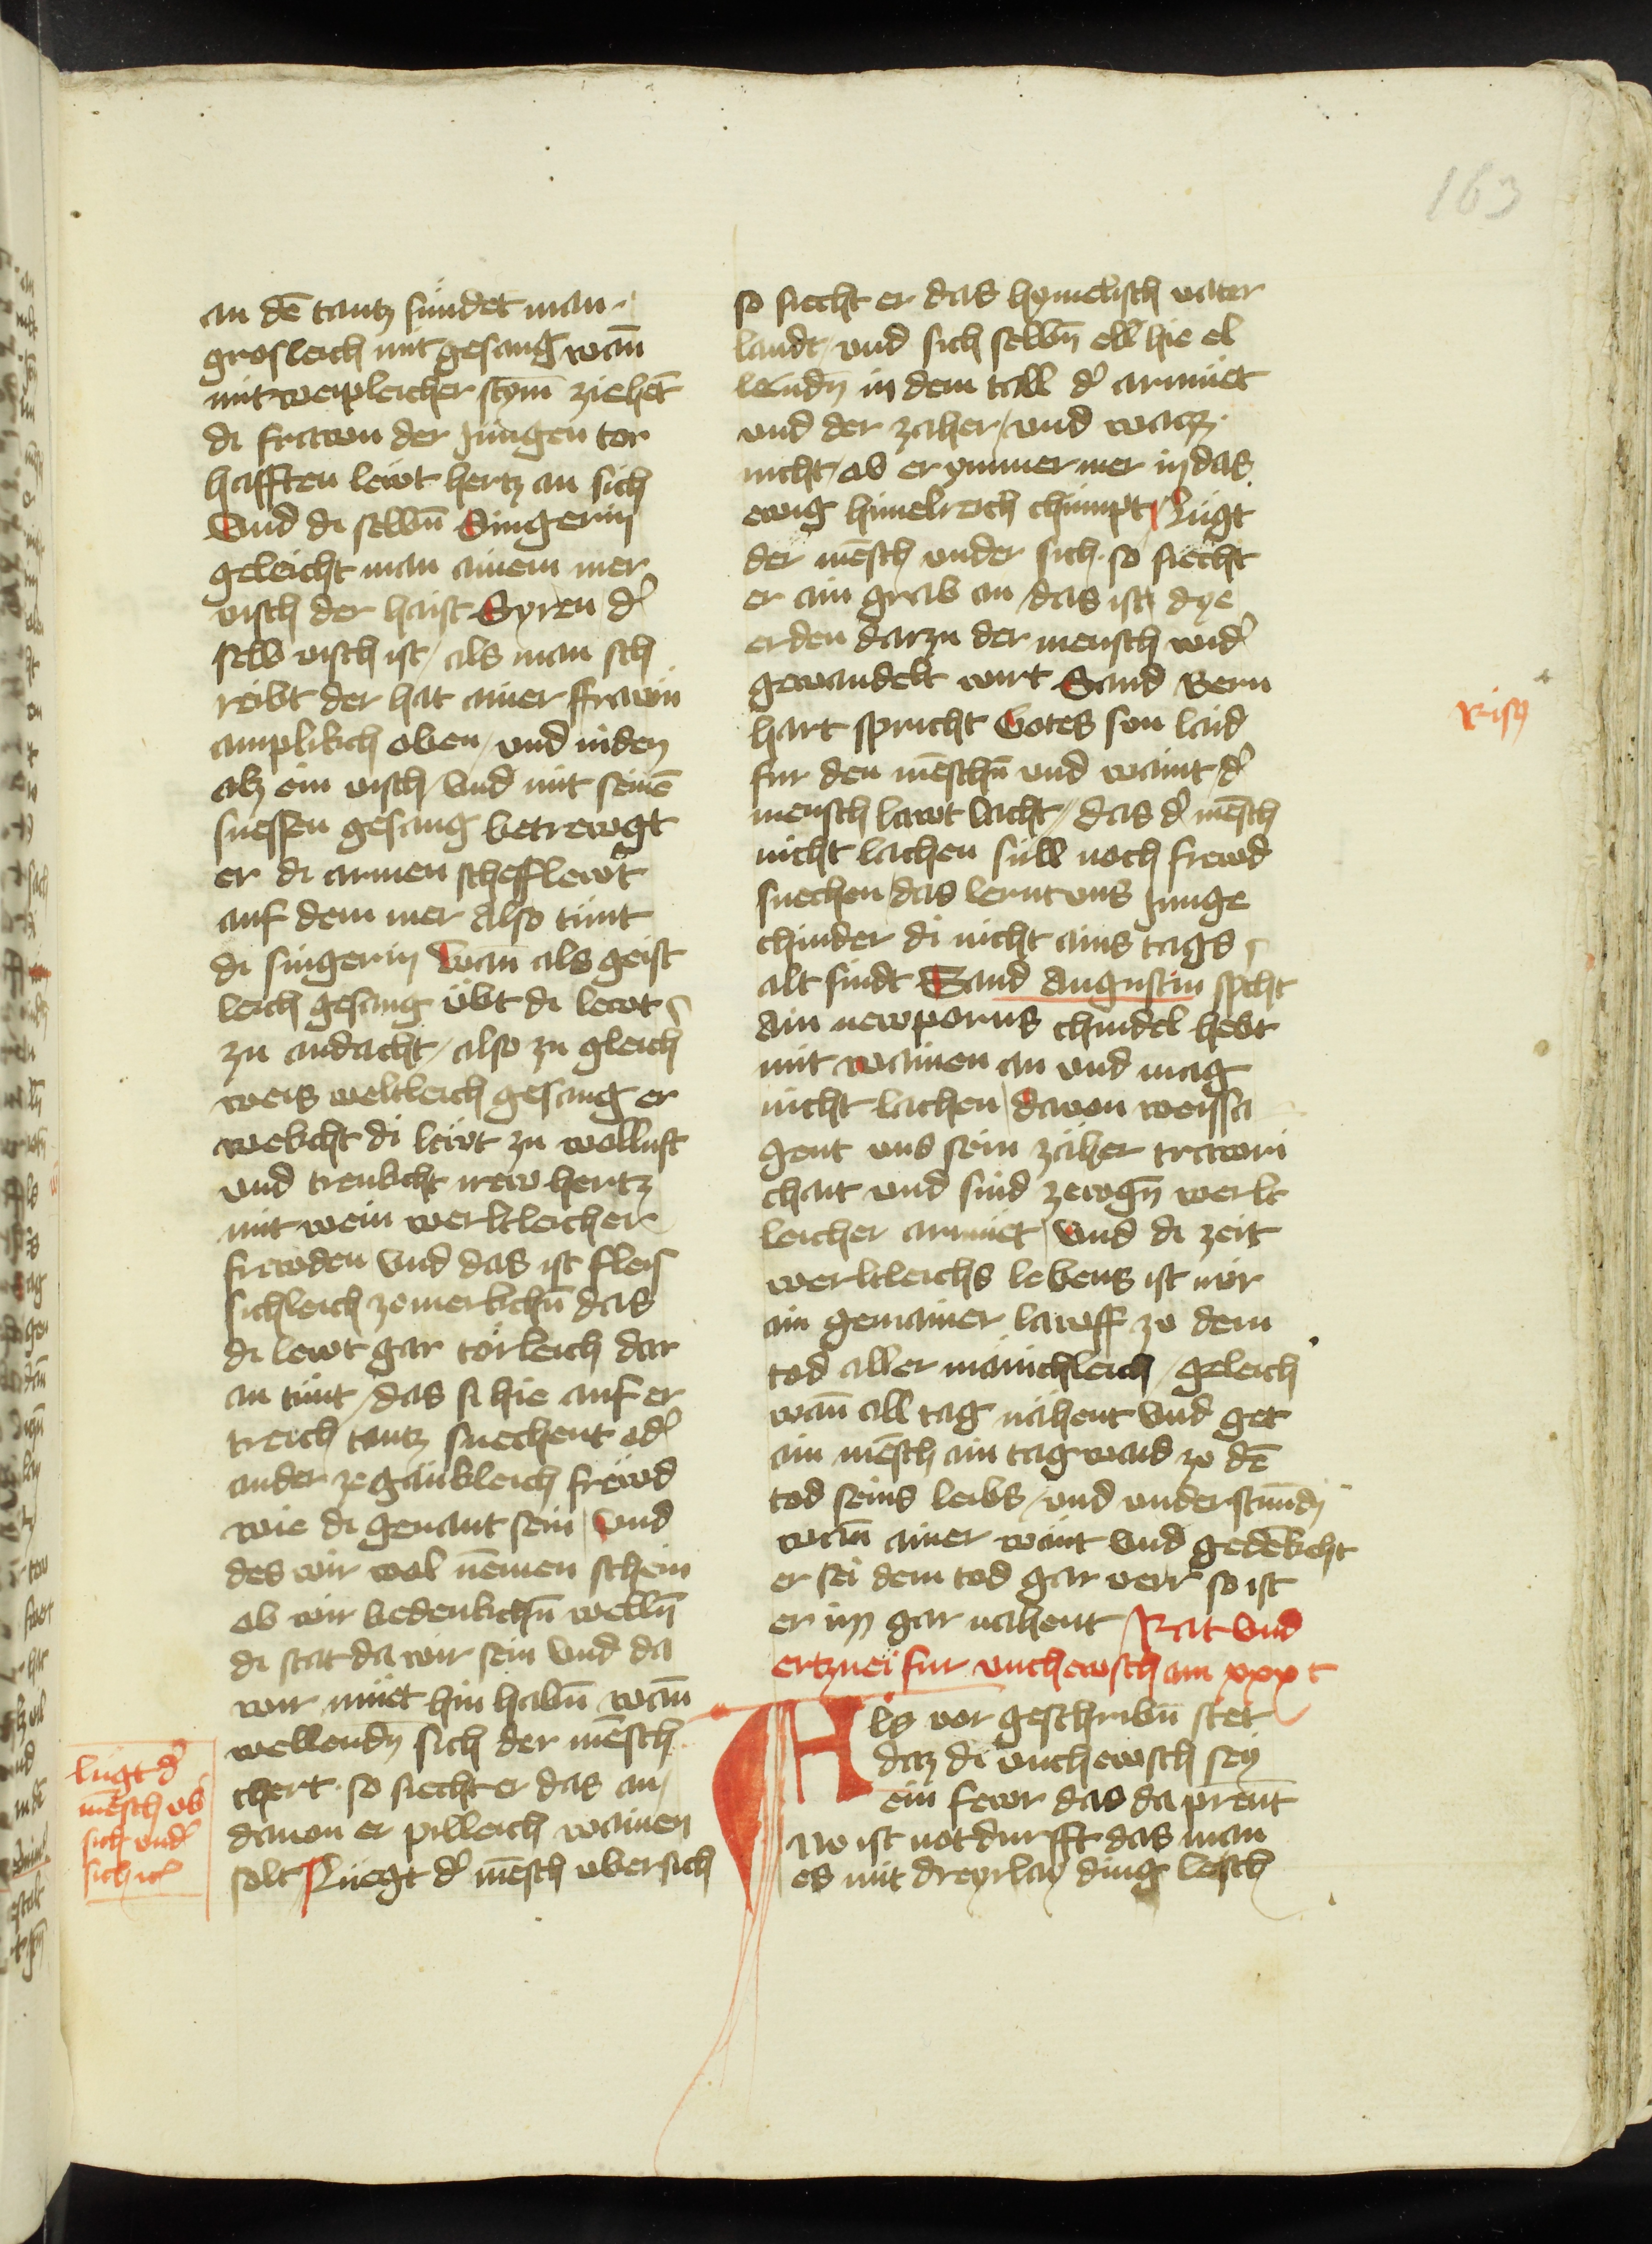 163
an dē tantz sündet man
grosleich mit gesang wañ
mit weipleicher stym̄ ziehēt
di frawn der Jungen tor
hafften lewt hertz an sich
Vnd di selbn̄ Singerin
geleicht man ainem mer
visch der haist Syren d͛
selb visch ist / als man sch
reibt der hat ainer ffrawn
amplikch oben / vnd niden
alz ein visch / Vnd mit seinē
suessen gesang betrewgt
er di armen schefflewt
auf dem mer Also tünt
di singerin Wañ als geist
leich gesang übt di lewt
zu andacht / also zu gleich
weis weltleich gesang er
wekcht di lewt zu wollust
vnd trenkcht irew hertz
mit wein werltleicher
frewden Vnd das ist fleis
sichleich ze merkchn̄ das
di lewt gar törleich dar
an tünt / das si hie auf er
treich tantz suechent od͛
ander zegänkleich frewd
wie di genant sein / Vnd
des wir wol nēmen schein
ob wir bedenkchn̄ welln̄
di stat da wir sein Vnd da
wir müet hin habn̄ wañ
wellendn sich der mēsch
chert · so siecht er das an /
dauon er pilleich wainen
solt Lüegt d͛ mēsch vbersich
lügt d͛
mēsch vb
sich vnd͛
sich
so siecht er das hymelisch vater
landt / vnd sich selbn̄ ell hie el
lendn̄ in dem tall d͛ armüet
vnd der zaher / vnd waiz
nicht / ob er ymmer mer in das
ewig himelreich chümpt Lügt
der mēsch vnder sich · so siecht
er ain grab an / das ist dye
erden darzu der mensch wid͛
gewandelt wirt Sand Bern
hart spricht Gotes sun laid
fur den mēschn̄ vnd waint / d͛
mensch lawt lacht / das d͛ mēsch
nicht lachen sull noch frewd
suechen / das lernt vns Junge
chinder di nicht ains tags
alt sindt Sand Augustin spcht
Ain newporns chindel hebt
mit wainen an vnd mag
nicht lachen / dauon weissa
gent vns sein zäher trawri
chait vnd sind zewgn̄ werlt
leicher armüet / Vnd di zeit
werltleichs lebens ist nür
ain gemainer lawff zu dem
tod aller mänichleich / geleich
wañ all tag nähent Vnd get
ain mēsch ain tagwaid zu dē
tod seins leibs / vnd vnderstundn
wañ ainer wänt Vnd gedēkcht
er sei dem tod gar verr so ist
er im gar nahent Rat Vnd
ertznei fur vnchewsch am xxx t
Als vor geschribn̄ stet
daz di vnchewsch sey
ein fewr das da prent
Nv ist notdurfft das man
es mit dreyrlay ding lesch